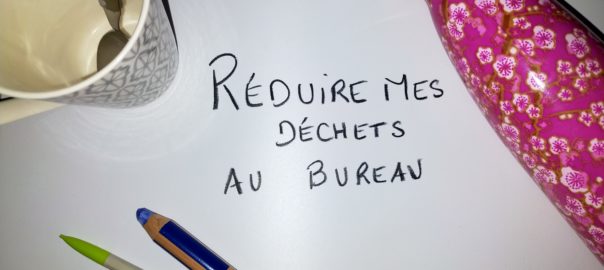 RÉDUIRE MES
DÉCHETS
AU BUREAU